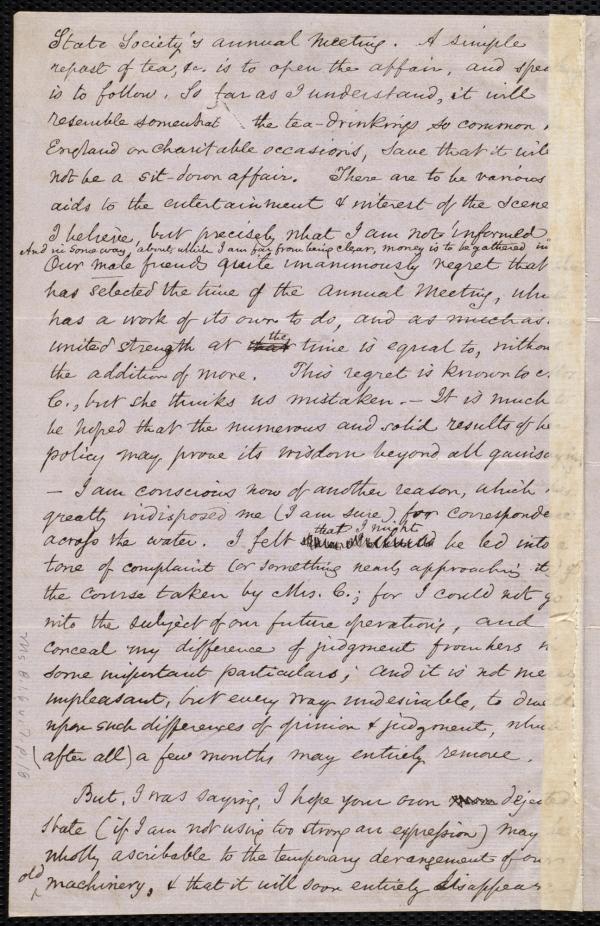 State Society's annual meeting. A simple
repast of tea, &c. is to open the affair, and
is to follow. So far as I understand, it will
resemble somewhat the tea-drinkings so common
England on charitable occasions, save that it will
not be a sit-down affair. There are to be various
aids to the entertainment & interest of the scene
I believe, but precisely what I am not informed.
And in some way, about which I am far from being clear, money is to be gathered in
Our male friends quite unanimously regret that
has selected the time of the Annual Meeting, which
has a work of its own to do, and as much as
united strength at that the time is equal to, without
the addition of more. This regret is known to
C., but she thinks us mistaken. — It is much to
be hoped that the numerous and solid results of
policy may prove its wisdom beyond all gainsaying.
— I am conscious now of another reason, which
greatly indisposed me (I am sure) for correspondence
that I might
across the water. I felt be led into a
tone of complaint (or something nearly approaching it) of
the course taken by Mrs. C.; for I could not go
into the subject of our future operations, and
conceal my difference of judgment from hers
some important particulars; and it is not merely
unpleasant, but every way undesirable, to dwell
upon such differences of opinion & judgment, which
(after all) a few months may entirely remove.
But, I was saying, I hope your own dejected
state (if I am not using too strong an expression) may be
wholly ascribable to the temporary derangement of our
old machinery, & that it will soon entirely disappear